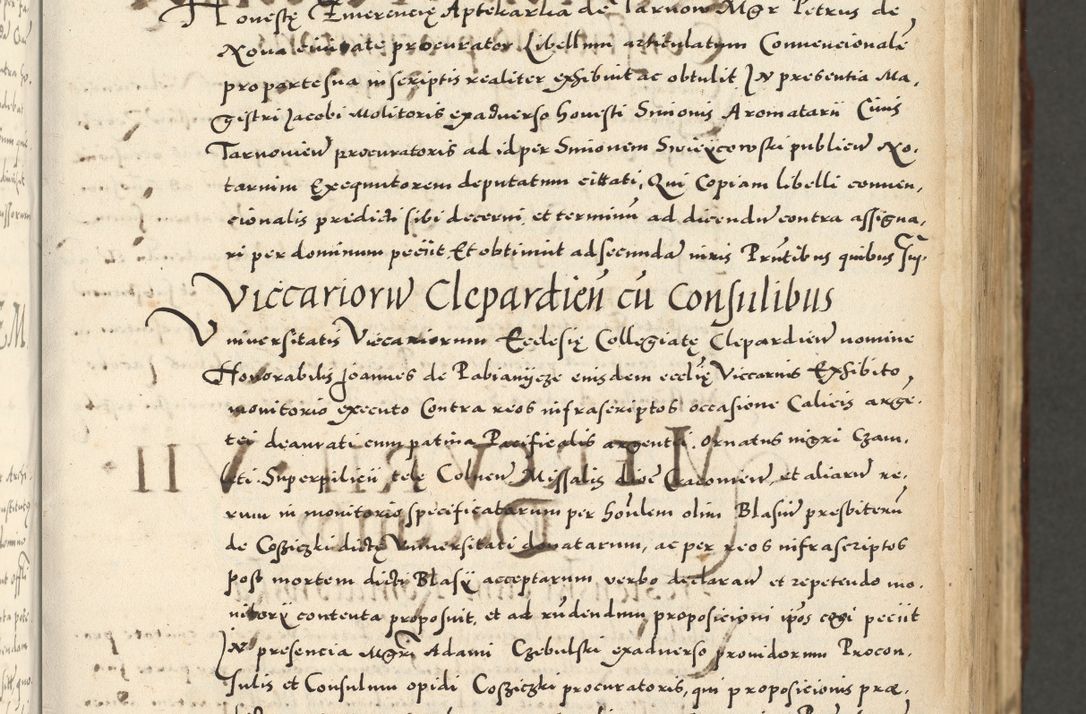 Honestę Emerencię Aptekarka de Tarnow Mgr Petrus de
Noua ciuitate procurator Libellum articulatum Conuencionalē
pro parte sua in scriptis realiter exhibuit ac obtulit In presentia Ma,
gistri Jacobi Molitoris ex aduerso honesti Simonis Aromatarii Ciuis
Tarnouien procuratoris ad id per Simonem Swięyczowski publicum No,
tarium Exequutorem deputatum cittati, Qui Copiam libelli conuen,
cionalis predicti sibi decerni, et terminū ad dicendum contra assigna,
ri per dominum peciit Et obtinuit ad secundā iuris Prntibus quibus sup.
Viccariorum Clepardień cū Consulibus
Vniuersitatis Viccariorum Ecclesię Collegiatę Clepardien nomine
Honorabilis Joannes de Pabianijcze eiusdem ecclię Viccarius Exhibito
monitorio executo Contra reos infrascriptos occasione Calicis argē,
tei deaurati cum patina Pacificalis argentei, Ornatus nigri Czam,
leti Superpilicii tele Colnen Missalis dioc Cracouien, et aliarum re,
rum in monitorio specificatarum per honlem olim Blasium presbiterū
de Cosziczki dictę Vniuersitati donatarum, ac per reos infrascriptos
post mortem dicti Blasij acceptarum verbo declarauit et repetendo mo,
nitorij contenta proposuit, et ad rndendum proposicioni ipos cogi peciit
In presencia Mgri Adami Czebulski ex aduerso prouidorum Procon,
sulis et Consulum opidi Cosziczki procuratoris, qui proposicionis præ,